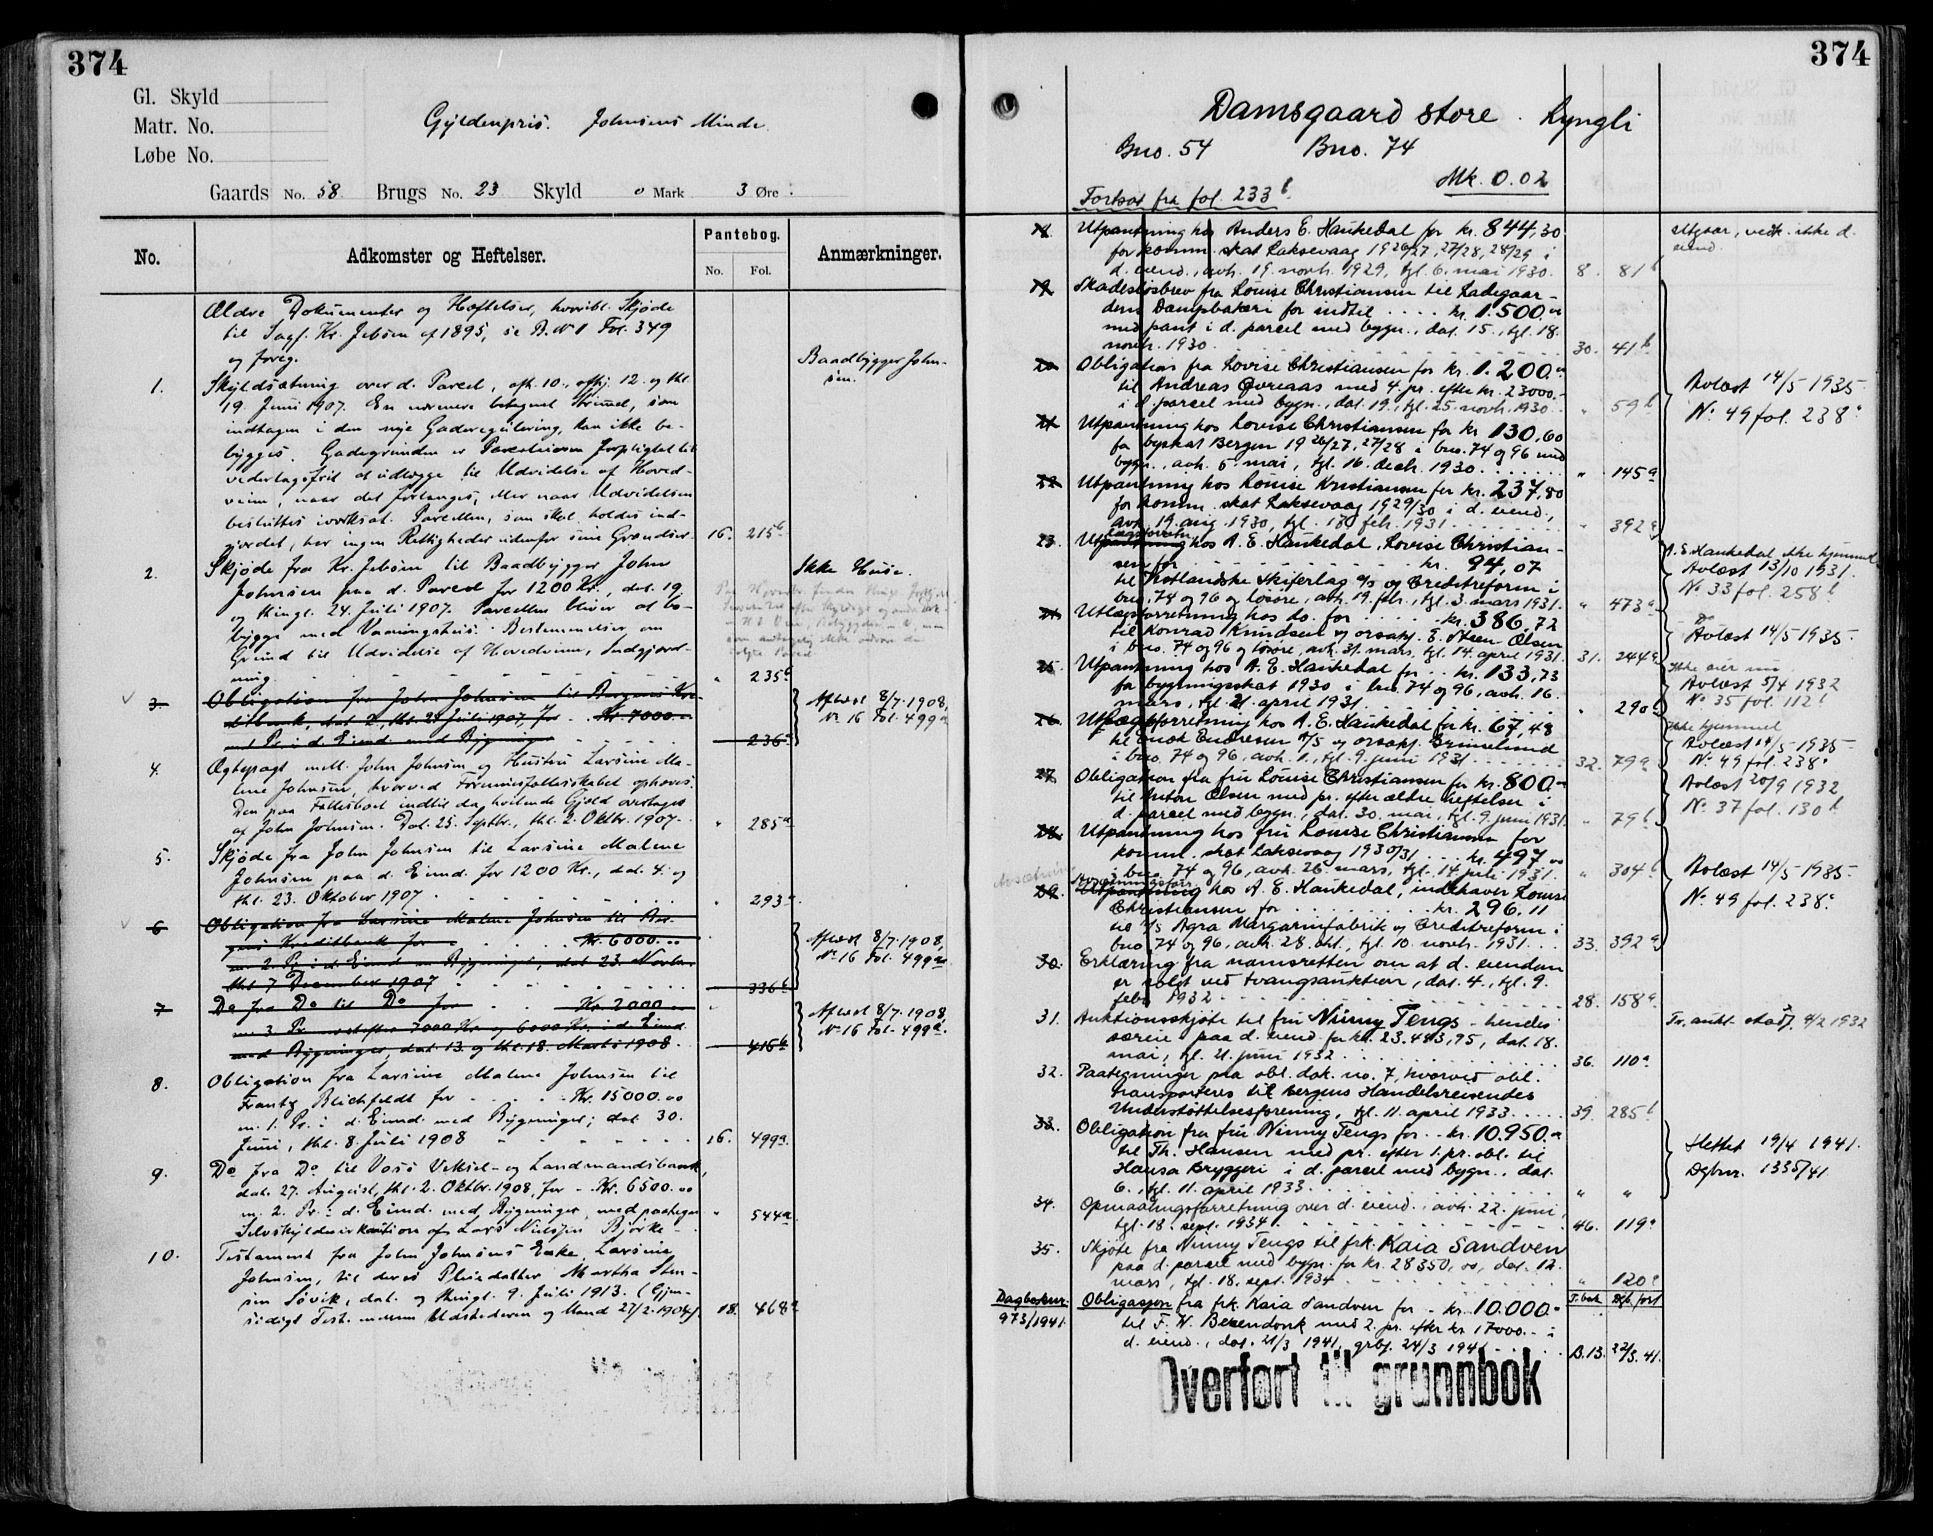 374
Gl. Skyld
Matr. No.
Løbe No.
Gyldenpris. Johnsens Minde.
Gaards No. 58. Brugs No. 23 Skyld 0 Mark 3 Øre
No.
Adkomster og Heftelser.
Pantebog.
No. Fol.
Anmærkninger.
Ældre Dokumenter og Hæftelser, hvoribl. Skjøde
til Sagf. Kr. Jebsen af 1895, se B. No 1 Fol. 349
og foreg.
Baadbygger John-
sen.
1. Skyldsætning over d. Parcel, afh. 10., afhj. 12. og thl.
19. Juni 1907. En nærmere betegnet Strimmel, som
indtages i den nye Gaderegulering, kan ikke be-
bygges. Gadegrunden er Parceleieren forpligtet til
vederlagsfrit at udlægge til Udvidelse af Hoved-
veien, naar det forlanges, eller naar Udvidelsen
besluttes iværksat. Parcellen, som skal holdes ind-
gjerdet, har ingen Rettigheder udenfor sine Grændser. 16. 215b
2. Skjøde fra Kr. Jebsen til Baadbygger John Ikke Huse.
Johnsen paa d. Parcel for 1200 Kr., dat. 19.
og thingl. 24. Juli 1907. Parcellen bliver at be-
bygge med Vaaningshus. Bestemmelser om
Grund til Udvidelse af Hovedveien, Indgjerd-
ning " 235b
3. Obligation fra John Johnsen til Bergens Kre-
ditbank, dat. 2., thl. 24 Juli 1907, for Kr. 7000.-
med Pr. i d. Eiend. med Bygninger 236a
Aflæst 8/7. 1908,
No 16 Fol. 499a
4. Ægtepagt mell. John Johnsen og Hustru Larsine Ma-
lene Johnsen, hvorved Formuesfællesskabet ophæves.
Den paa Fællesboet indtil da hvilende Gjæld overtages
af John Johnsen. Dat. 25. Septbr., thl. 2. Oktbr. 1907. " 285a
5. Skjøde fra John Johnsen til Larsine Malene
Johnsen paa d. Eiend. for 1200 Kr., dat. 4. og
thl. 23. Oktober 1907 " 293a
6. Obligation fra Larsine Malene Johnsen til Ber-
gens Kreditbank for Kr. 6000.00
m. 2. Pr. i d. Eiend. m. Bygninger, dat. 23. Novbr.
thl. 7. December 1907 336b
Aflæst 8/7. 1908,
No 16 Fol. 499a
7. Do fra Do til Do for Kr. 2000
m. 3 Pr. næstefter 7000 Kr. og 6000 Kr. i d. Eiend.
med Bygninger, dat. 13. og thl. 18. Marts 1908. 416b
Aflæst 8/7. 1908,
No 16 Fol. 499a
8. Obligation fra Larsine Malene Johnsen til
Frantz Blichfeldt for Kr. 15000.00
m. 1. Pr. i d. Eiend. med Bygninger; dat. 30.
Juni, thl. 8. Juli 1908 16. 499a
9. Do fra Do til Voss Veksel- og Landmandsbank,
dat. 27. August, thl. 2. Oktbr. 1908, for Kr. 6500.00
m. 2. Pr. i d. Eiend. med Bygninger, med paategnet
Selvskyldnerkaution af Lars Nielsen Bjørke " 544a
10. Testament fra John Johnsens Enke, Larsine
Johnsen, til deres Pleiedatter Martha Sten-
sen Søvik, dat. og thingl. 9. Juli 1913. (Gjen-
sidigt Test. mellem Udstederen og Mand 27/2. 1904). 18. 468a
374
Damsgaard store. Lyngli
Bno. 54 Bno. 74
Mk. 0.02
Fortsat fra fol. 233b
18. Utpantning hos Anders E. Haukedal for kr. 844,30
for komm. skat Laksevaag 1926/27, 27/28, 28/29 i
d. eiend., avh. 19. novbr. 1929, tgl. 6. mai 1930. 8. 81b
utgaar, vedk. ikke d.
eiend.
19. Skadesløsbrev fra Lovise Christiansen til Ladegaar-
dens Dampbakeri for indtil kr. 1.500.00
med pant i d. parcel med bygn., dat. 15., tgl. 18.
novbr. 1930 30. 41b
20. Obligation fra Lovise Christiansen for kr. 1.200.-
til Andreas Qvreaas med 4. pr. efter kr. 23000.-
i d. parcel med bygn., dat. 19., tgl. 25. novbr. 1930 " 59b
Avlæst 14/5 1935
No. 49 fol. 238a
21. Utpantning hos Lovise Christiansen for kr. 130,60
for byskat Bergen 1926/27, 27/28 i bno. 74 og 96 med
bygn., avh. 5. mai, tgl. 16. decbr. 1930 " 145a
22. Utpantning hos Louise Kristiansen for kr. 237,80
for komm. skat Laksevaag 1929/30 i d. eiend.,
avh. 19. aug. 1930, tgl. 18. febr. 1931 " 392a
23. Utlægsforretn. hos A. E. Haukedal, Lovise Christian-
sen for kr. 94,07
til Hetlandske Skiferlag a/s og Creditreform i
bno. 74 og 96 og løsøre, avh. 19. febr., tgl. 3. mars 1931. " 473a
A. E. Haukedal ikke hjemmel
Avlæst 13/10 1931.
No. 33 fol. 258b
24. Utlægsforretning hos do. for kr. 386,72
til Konrad Knudsen og orsakf. E. Steen Olsen
i bno. 74 og 96 og løsøre, avh. 31. mars, tgl. 14. april 1931. 31. 244a
Do
Avlæst 14/5 1935
25. Utpantning hos A. E. Haukedal for kr. 133,73
for bygningsskat 1930 i bno. 74 og 96, avh. 16.
mars, tgl. 21. april 1931 " 290b
Ikke eier nu
Avlæst 5/4 1932
No. 35 fol. 112b
26. Utlægsforretning hos A. E. Haukedal for kr. 67,48
til Enok Endresen A/S og orsakf. Grimelund
i bno. 74 og 96, avh. 1., tgl. 9. juni 1931 32. 79a
Ikke hjemmel
Avlæst 14/5 1935
No. 49 fol. 238a
27. Obligation fra fru Louise Christiansen for kr. 800.-
til Anton Olsen med pr. efter ældre heftelser i
d. parcel med bygn., dat. 30. mai, tgl. 9. juni 1931. " 79b
Avlæst 20/9 1932
No. 37 fol. 130b
28. Utpantning hos fru Louise Christiansen for
komm. skat Laksevaag 1930/31 kr. 497.00
i bno. 74 og 96, avh. 26. mars, tgl. 14. juli 1931. " 304b
29. hos A. E. Haukedal, indehaver Louise
Christiansen for kr. 296,11
til A/s Agra Margarinfabrik og Creditreform i
bno. 74 og 96, avh. 28. okt., tgl. 10. novbr. 1931 33. 392a
Avlæst 14/5 1935
No. 49 fol. 238a
30. Erklæring fra namsretten om at d. eiendom
er solgt ved tvangsauktion, dat. 4., tgl. 9.
febr. 1932 28. 158a
31. Auktionsskjøte til fru Ninny Tengs - hendes
særeie paa d. eiend. for kr. 23.493,95, dat. 18.
mai, tgl. 21. juni 1932 36. 110a
Tv. aukt. 4/2 1932
32. Paategninger paa obl. dok. no. 7, hvorved obl.
transporteres til Bergens Handelsreisendes
Understøttelsesforening, tgl. 11. april 1933 39. 285b
33. Obligation fra fru Ninny Tengs for kr. 10.950.-
til Th. Hansen med pr. efter 1. pr. obl. til
Hansa Bryggeri i d. parcel med bygn., dat.
6., tgl. 11. april 1933 " "
Slettet 19/4 1941.
Dgbnr. 1335/41.
34. Opmaalingsforretning over d. eiend., avh. 22. juni,
tgl. 18. sept. 1934 46. 119a
35. Skjøte fra Ninny Tengs til frk. Kaia Sandven
paa d. parcel med bygn. for kr. 28350,00, dat. 12.
mars, tgl. 18. sept. 1934 " 120a
Dagboknr. 973/1941
Obligasjon fra frk. Kaia Sandven for kr. 10.000.-
til F. W. Berendonk med 2. pr. efter kr. 17000.- i
d. eiend., dat. 21/3 1941, grbf. 24/3 1941 B.13. 22/3. 41.
Overført til grunnbok